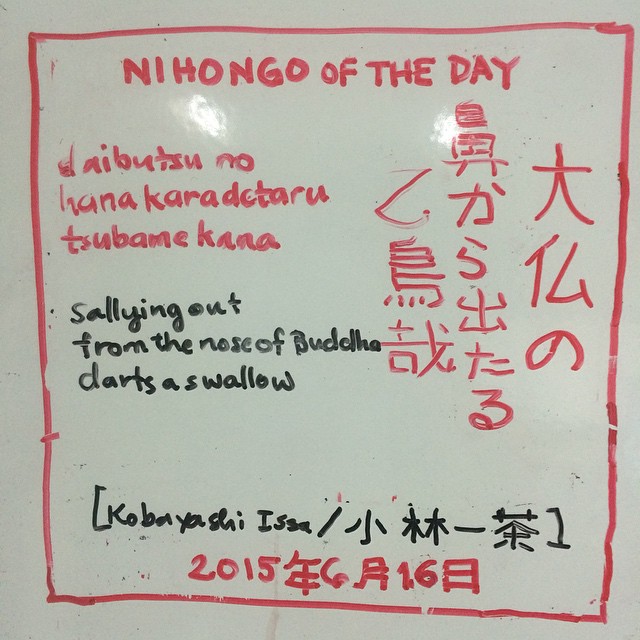 NIHONGO OF THE DAY
大仏の
鼻から出たる
乙鳥哉
daibutsu no
hana kara detaru
tsubame kana
sallying out
from the nose of Buddha
darts a swallow
[Kobayashi Issa/小林一茶]
2015年6月16日